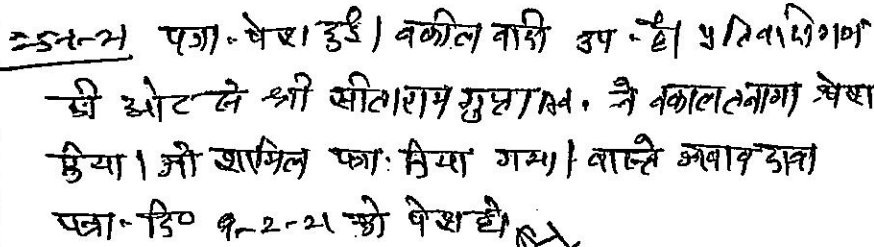 25-1-21 पत्रा. पेश हुई। वकील वादी उप. है। प्रतिवादीगण
की ओर से श्री सीताराम गुप्ता एड. ने वकालतनामा पेश
किया। जो शामिल पत्रा. किया गया। वास्ते जवाब दावा
पत्रा. दि० 9-2-21 को पेश हो।